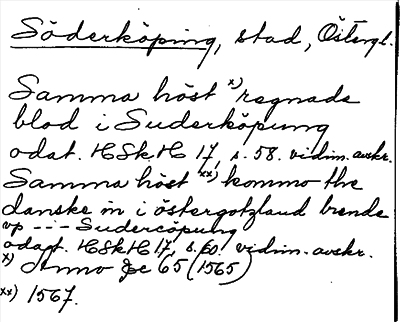 Söderköping, stad, Östergl.
Samma höst x) regnade
blod i Suderköpung
odat. HSkH 17, s. 58. vidim. avskr.
Samma höst xx) kommo the
danske in i östergotzland brende
vp --- Sudercöpung
odat. HSkH 17, s. 60. vidim. avskr.
x) Anno &c 65 (1565)
xx) 1567.